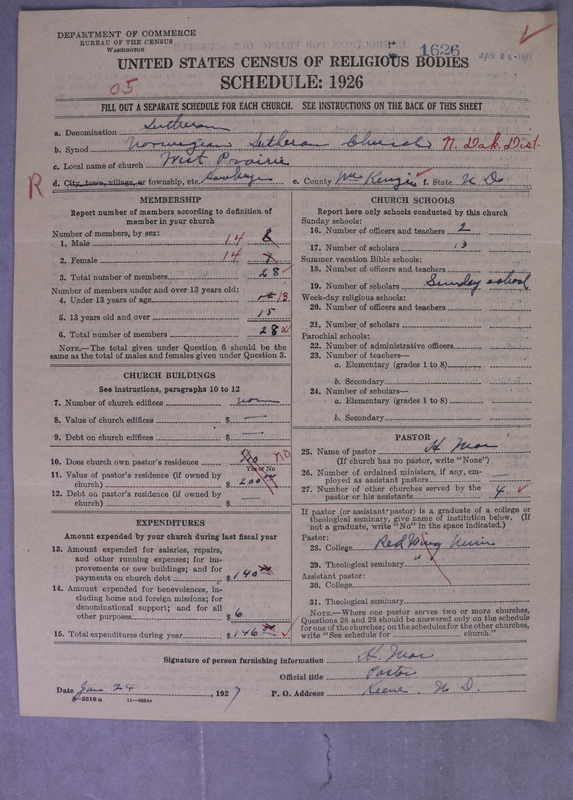 DEPARTMENT OF COMMERCE
BUREAU OF THE CENSUS
WASHINGTON
1626
JAN 29
UNITED STATES CENSUS OF RELIGIOUS BODIES
SCHEDULE: 1926
05
FILL OUT A SEPARATE SCHEDULE FOR EACH CHURCH. SEE INSTRUCTIONS ON THE BACK OF THIS SHEET
a. Denomination Lutheran
b. Synod Norwegian Lutheran Church N. Dak. Dist.
c. Local name of church West Prairie
R d. City, town, village, or township, etc. e. County McKenzie f. State N D
MEMBERSHIP
Report number of members according to definition of
member in your church
Number of members, by sex:
1. Male 14 8
2. Female 14 7
3. Total number of members 28
Number of members under and over 13 years old:
4. Under 13 years of age 13
5. 13 years old and over 15
6. Total number of members 28
NOTE.—The total given under Question 6 should be the
same as the total of males and females given under Question 3.
CHURCH BUILDINGS
See instructions, paragraphs 10 to 12
7. Number of church edifices none
8. Value of church edifices $ —
9. Debt on church edifices $ —
10. Does church own pastor's residence No no
Yes or No
11. Value of pastor's residence (if owned by
church) $ 200
12. Debt on pastor's residence (if owned by
church) $
EXPENDITURES
Amount expended by your church during last fiscal year
13. Amount expended for salaries, repairs,
and other running expenses; for im-
provements or new buildings; and for
payments on church debt $ 140
14. Amount expended for benevolences, in-
cluding home and foreign missions; for
denominational support; and for all
other purposes $ 6
15. Total expenditures during year $ 146
CHURCH SCHOOLS
Report here only schools conducted by this church
Sunday schools:
16. Number of officers and teachers 2
17. Number of scholars 13
Summer vacation Bible schools:
18. Number of officers and teachers
19. Number of scholars Sunday school
Week-day religious schools:
20. Number of officers and teachers
21. Number of scholars
Parochial schools:
22. Number of administrative officers
23. Number of teachers—
a. Elementary (grades 1 to 8)
b. Secondary
24. Number of scholars—
a. Elementary (grades 1 to 8)
b. Secondary
PASTOR
25. Name of pastor H. Moe
(If church has no pastor, write "None")
26. Number of ordained ministers, if any, em-
ployed as assistant pastors —
27. Number of other churches served by the
pastor or his assistants 4
If pastor (or assistant pastor) is a graduate of a college or
theological seminary, give name of institution below. (If
not a graduate, write "No" in the space indicated.)
Pastor:
28. College Red Wing
29. Theological seminary " "
Assistant pastor:
30. College
31. Theological seminary
NOTE.—Where one pastor serves two or more churches,
Questions 28 and 29 should be answered only on the schedule
for one of the churches; on the schedules for the other churches,
write "See schedule for church."
Signature of person furnishing information H. Moe
Official title Pastor
Date Jan 24, 1927 P. O. Address Keene, N D.
8—5518a 11—9084a